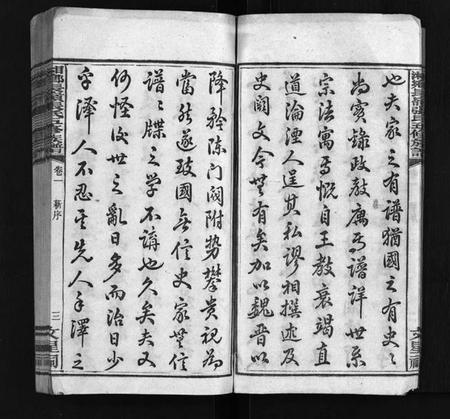 也夫家之有譜猶國之有史史
尚實錄政教厲焉譜詳世系
宗法寓焉慨目王教衰竭直
道淪湮人逞其私謬相撰述及
史闕文今無有矣加以魏晋以
降矜陳门阀附势攀贵視為
當然遂致國無信史家無信
譜譜牒之学不講也久矣夫又
何怪後世之亂日多而治日少
乎澤人不忍其先人手澤之
卷一
新序
三